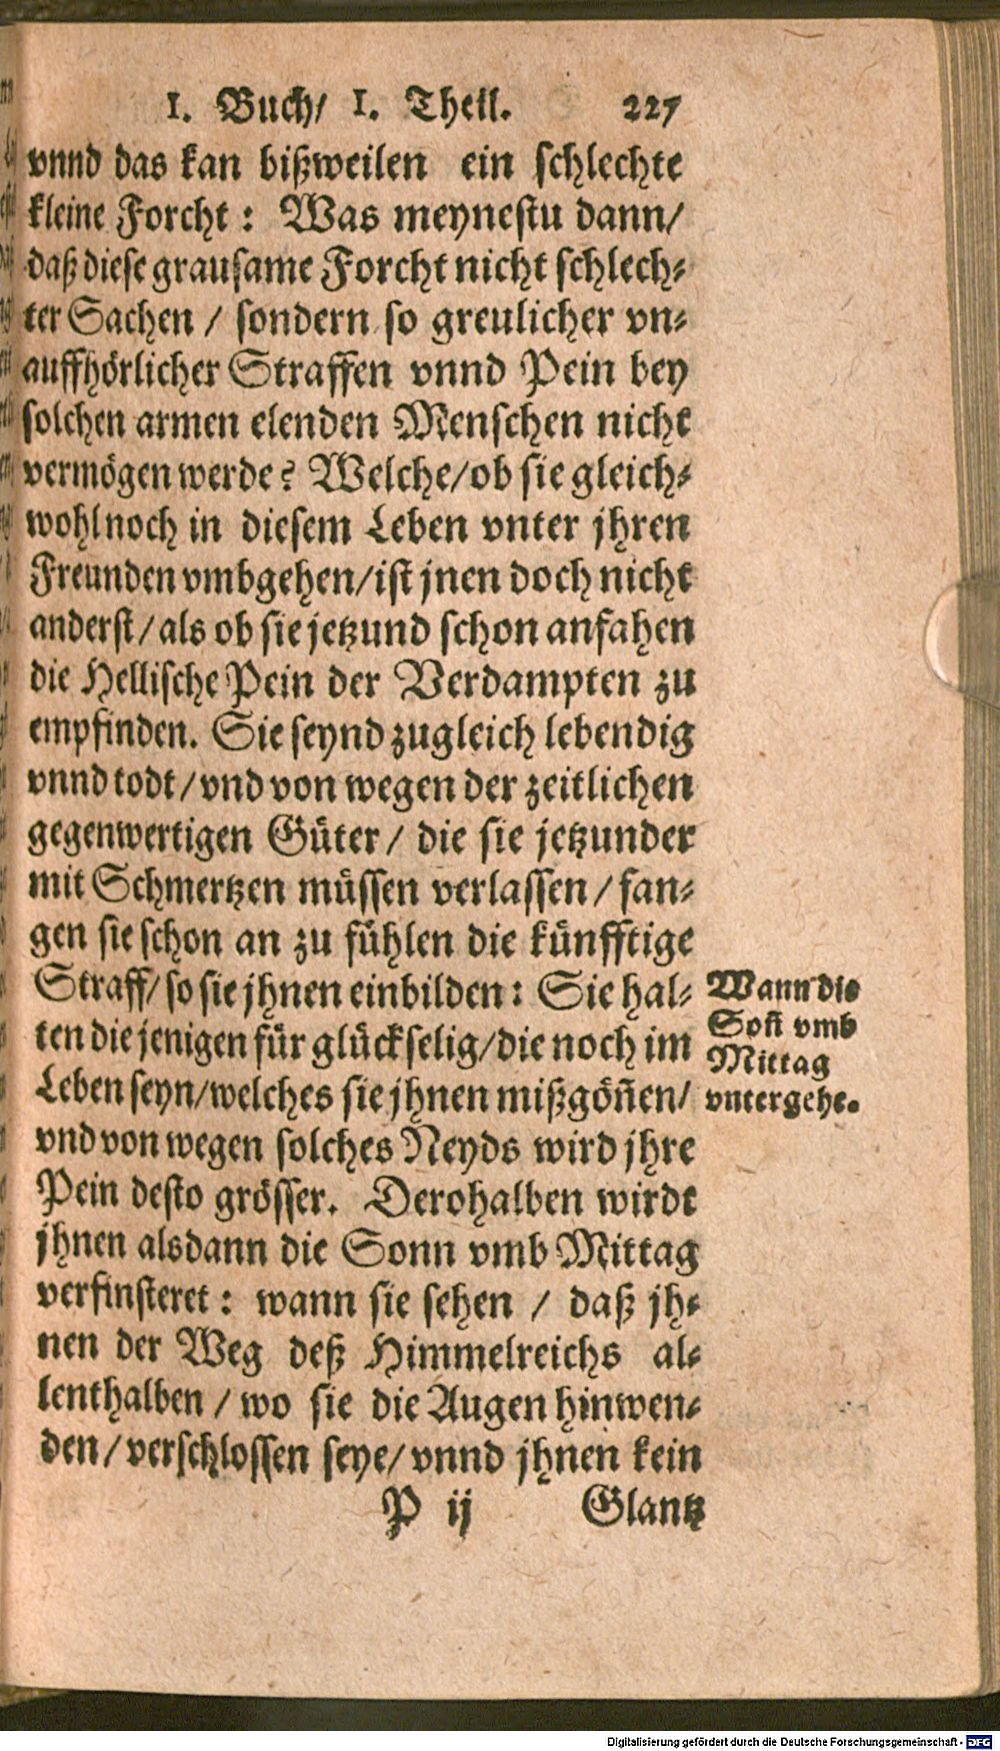 1. Buch/ 1. Theil. 227
vnnd das kan bißweilen ein schlechte
kleine Forcht: Was meynestu dann/
daß diese grausame Forcht nicht schlech⸗
ter Sachen / sondern so greulicher vn⸗
auffhörlicher Straffen vnnd Pein bey
solchen armen elenden Menschen nicht
vermögen werde? Welche/ob sie gleich⸗
wohl noch in diesem Leben vnter jhren
Freunden vmbgehen/ist jnen doch nicht
anderst/als ob sie jetzund schon anfahen
die Hellische Pein der Verdampten zu
empfinden. Sie seynd zugleich lebendig
vnnd todt/vnd von wegen der zeitlichen
gegenwertigen Güter/ die sie jetzunder
mit Schmertzen müssen verlassen/fan⸗
gen sie schon an zu fühlen die künfftige
Straff/so sie jhnen einbilden: Sie hal⸗
ten die jenigen für glückselig/die noch im
Leben seyn/welches sie jhnen mißgön̄en/
vnd von wegen solches Neyds wird jhre
Pein desto grösser. Derohalben wirdt
jhnen alsdann die Sonn vmb Mittag
verfinsteret: wann sie sehen / daß jh⸗
nen der Weg deß Himmelreichs al⸗
lenthalben / wo sie die Augen hinwen⸗
den/verschlossen seye/vnnd jhnen kein
P ij Glantz
Wann die
Son̄ vmb
Mittag
vntergehe.
Digitalisierung gefördert durch die Deutsche Forschungsgemeinschaft - DFG